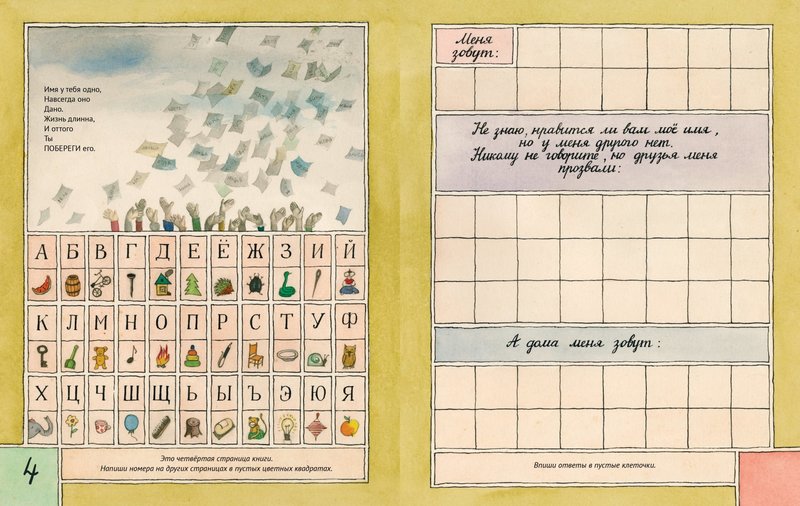 Имя у тебя одно,
Навсегда оно
Дано.
Жизнь длинна,
И оттого
Ты
ПОБЕРЕГИ его.
А Б В Г Д Е Ё Ж З И Й
К Л М Н О П Р С Т У Ф
Х Ц Ч Ш Щ Ь Ы Ъ Э Ю Я
4
Это четвёртая страница книги.
Напиши номера на других страницах в пустых цветных квадратах.
Меня
зовут:
Не знаю, нравится ли вам моё имя,
но у меня другого нет.
Никому не говорите, но друзья меня
прозвали:
А дома меня зовут:
Впиши ответы в пустые клеточки.